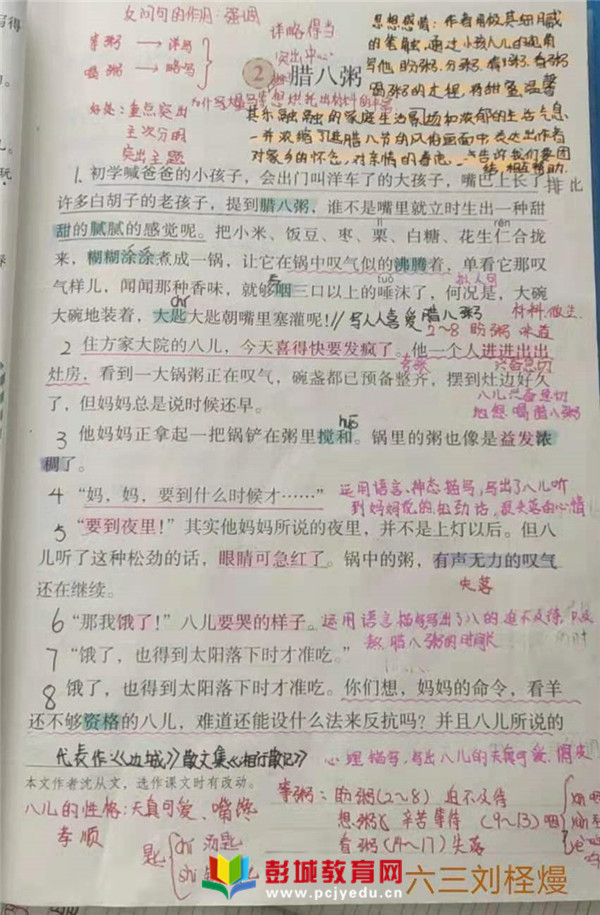 反问句的作用：强调
等粥 → 详写
喝粥 → 略写
详略得当
突出中心
好处：重点突出
主次分明
突出主题
思想感情：作者用极其细腻
的笔触，通过小孩八儿的视角
写他盼粥、分粥、
喝粥的过程，将甜蜜、温馨
其乐融融的家庭生活
一并浓缩
对家乡的怀念，对亲情的眷恋
2 腊八粥
1. 初学喊爸爸的小孩子，会出门叫洋车了的大孩子，嘴巴上长了 排比
许多白胡子的老孩子，提到腊八粥，谁不是嘴里就立时生出一种甜
甜的腻腻的感觉呢。把小米、饭豆、枣、栗、白糖、花生仁合拢
来，糊糊涂涂煮成一锅，让它在锅中叹气似的沸腾着，单看它那叹
气样儿，闻闻那种香味，就够咽三口以上的唾沫了，何况是，大碗
大碗地装着，大匙大匙朝嘴里塞灌呢！// 写人人喜爱腊八粥
2~8 盼粥
2 住方家大院的八儿，今天喜得快要发疯了。他一个人进进出出
灶房，看到一大锅粥正在叹气，碗盏都已预备整齐，摆到灶边好久
了，但妈妈总是说时候还早。
八儿兴奋急切
地想喝腊八粥
3 他妈妈正拿起一把锅铲在粥里搅和。锅里的粥也像是益发浓
稠了。
4 “妈，妈，要到什么时候才……”
运用语言、神态描写，写出了八儿听
到妈妈说的松劲话，很失落的心情
5 “要到夜里！”其实他妈妈所说的夜里，并不是上灯以后。但八
儿听了这种松劲的话，眼睛可急红了。锅中的粥，有声无力的叹气
还在继续。
失落
6 “那我饿了！”八儿要哭的样子。
7 “饿了，也得到太阳落下时才准吃。”
8 饿了，也得到太阳落下时才准吃。你们想，妈妈的命令，看羊
还不够资格的八儿，难道还能设什么法来反抗吗？并且八儿所说的
代表作：《边城》散文集《湘行散记》
心理描写，写出八儿的天真可爱、调皮
本文作者沈从文，选作课文时有改动。
八儿的性格：天真可爱、嘴馋
孝顺
匙
chí 汤匙
shi
等粥：盼粥（2~8）迫不及待
想粥 辛苦等待（9~13）
看粥（14~17）失落
彭城教育网
www.pcjyedu.cn
六三刘柽熳